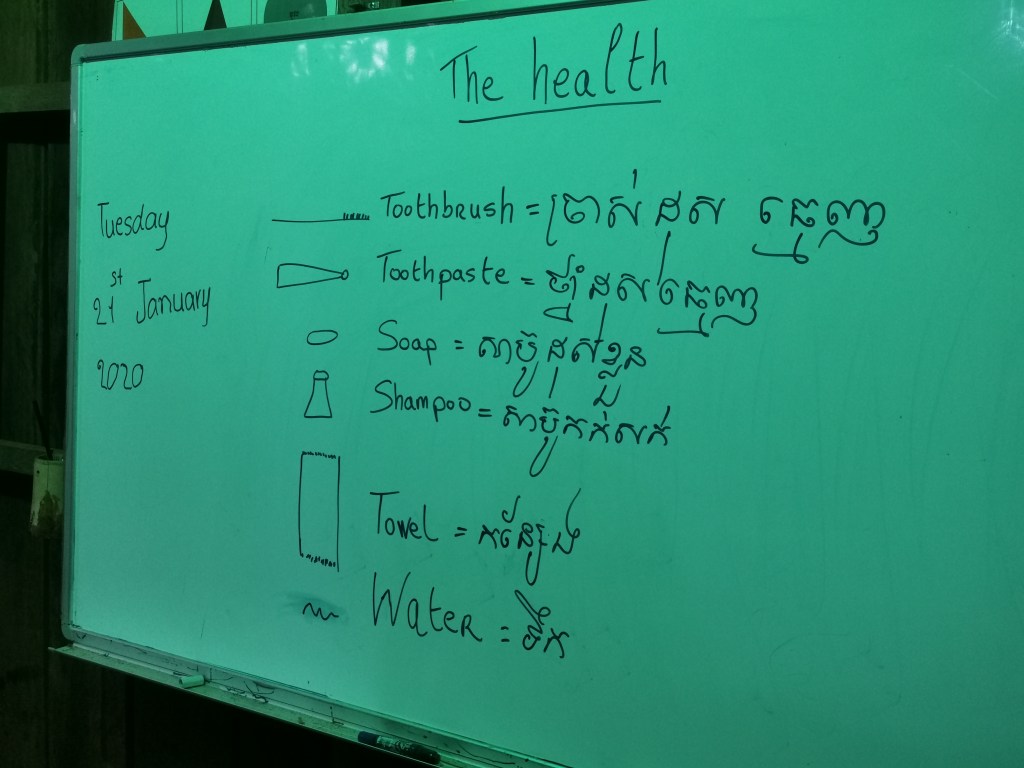 The health
Tuesday
21st January
2020
Toothbrush = ច្រាស់ដុស ធ្មេញ
Toothpaste = ថ្នាំដុសធ្មេញ
Soap = សាប៊ូដុសខ្លួន
Shampoo = សាប៊ូកក់សក់
Towel = កន្សែង
Water = ទឹក